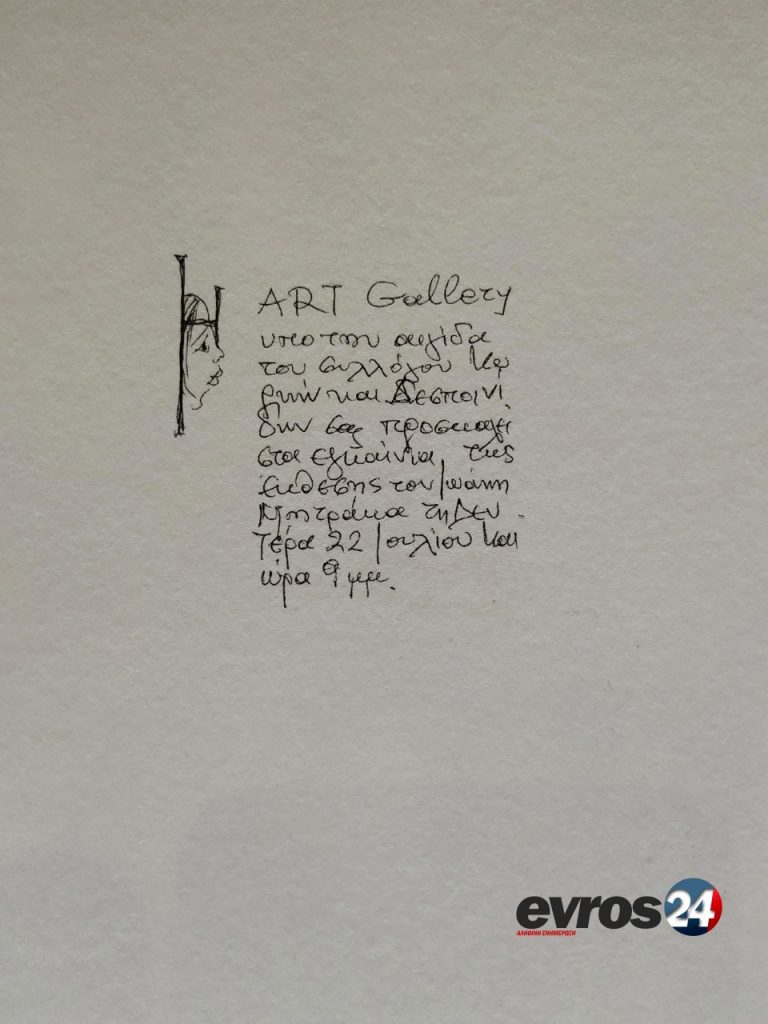 H ART Gallery
υπο την αιγίδα
του συλλόγου Κυ
ριών και Δεσποινί
δων σας προσκαλεί
στα εγκαίνια της
έκθεσης του Ιωάννη
Μητράκα τη Δευ
τέρα 22 Ιουλίου και
ώρα 9 μμ.
evros24
ΑΛΗΘΙΝΗ ΕΝΗΜΕΡΩΣΗ